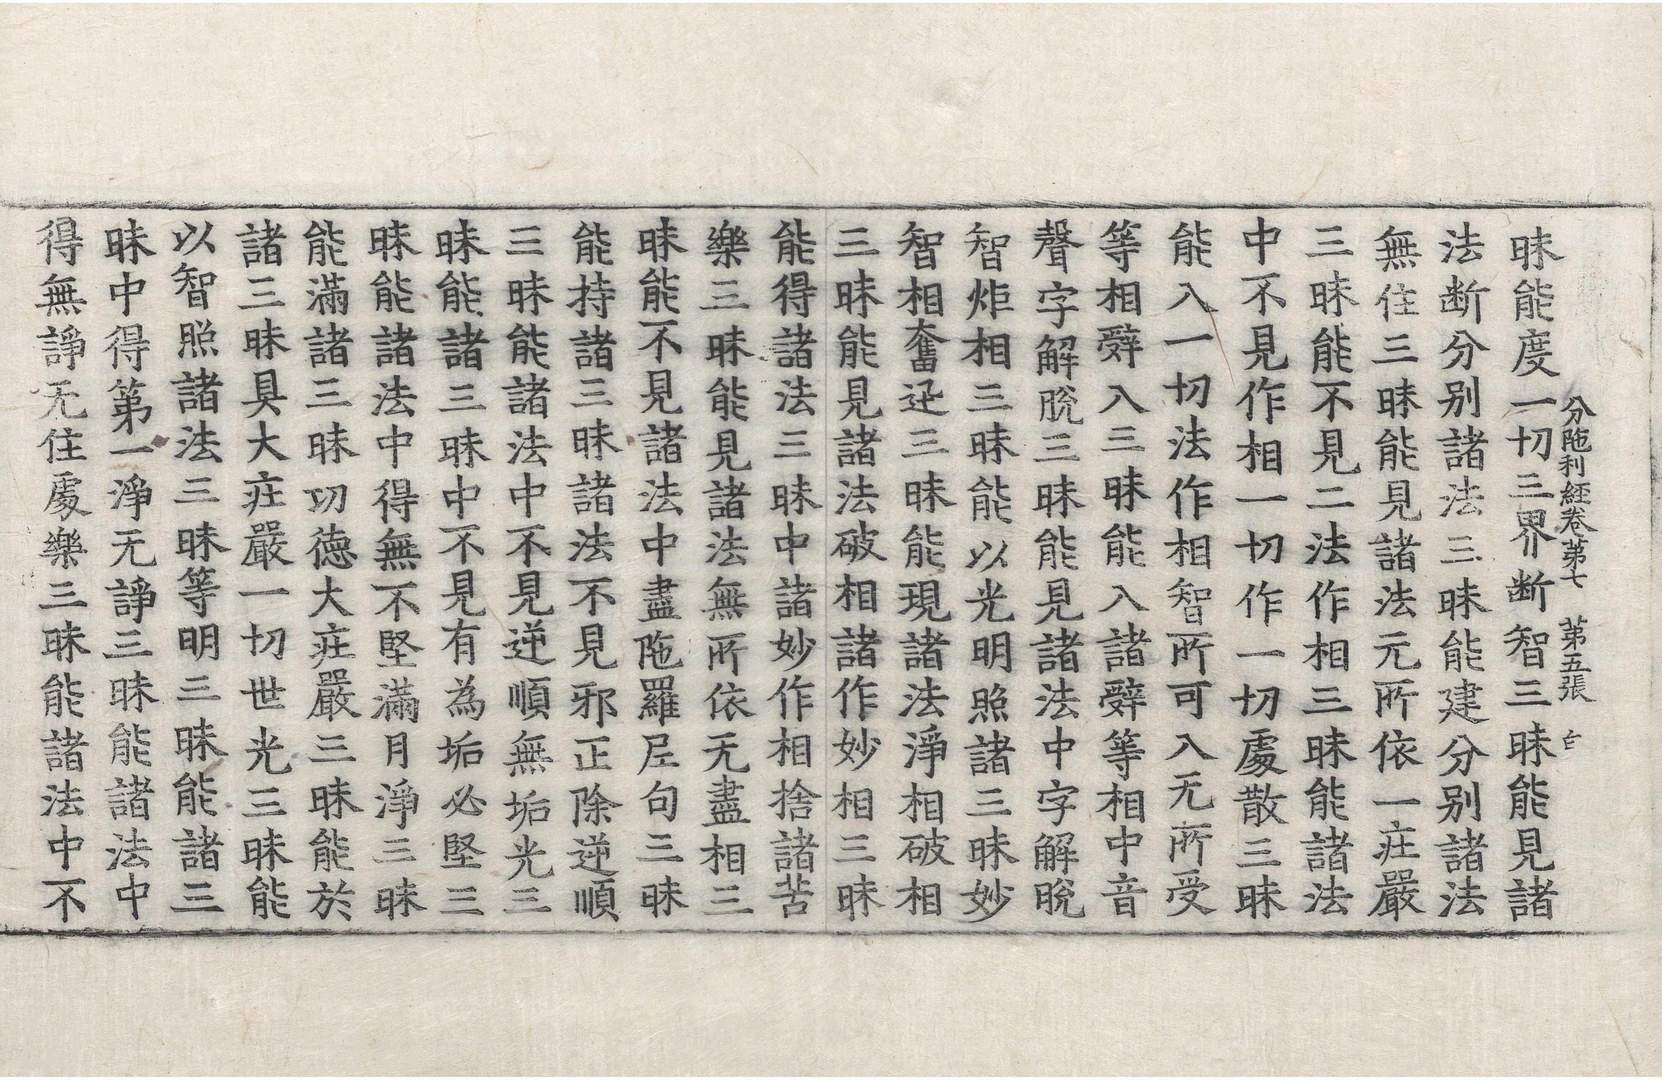 分陁利經卷第七　第五張
昧能度一切三界断智三昧能見諸
法断分别諸法三昧能建分别諸法
無住三昧能見諸法元所依一庄嚴
三昧能不見二法作相三昧能諸法
中不見作相一切作一切處散三昧
能入一切法作相智所可入无所受
等相辤入三昧能入諸辤等相中音
聲字解脫三昧能見諸法中字解脫
智炬相三昧能以光明照諸三昧妙
智相奮迅三昧能現諸法淨相破相
三昧能見諸法破相諸作妙相三昧
能得諸法三昧中諸妙作相捨諸苦
樂三昧能見諸法無所依无盡相三
昧能不見諸法中盡陁羅尼句三昧
能持諸三昧諸法不見邪正除逆順
三昧能諸法中不見逆順無垢光三
昧能諸三昧中不見有為垢必堅三
昧能諸法中得無不堅滿月淨三昧
能滿諸三昧功德大庄嚴三昧能於
諸三昧具大庄嚴一切世光三昧能
以智照諸法三昧等明三昧能諸三
昧中得第一淨无諍三昧能諸法中
得無諍无住處樂三昧能諸法中不